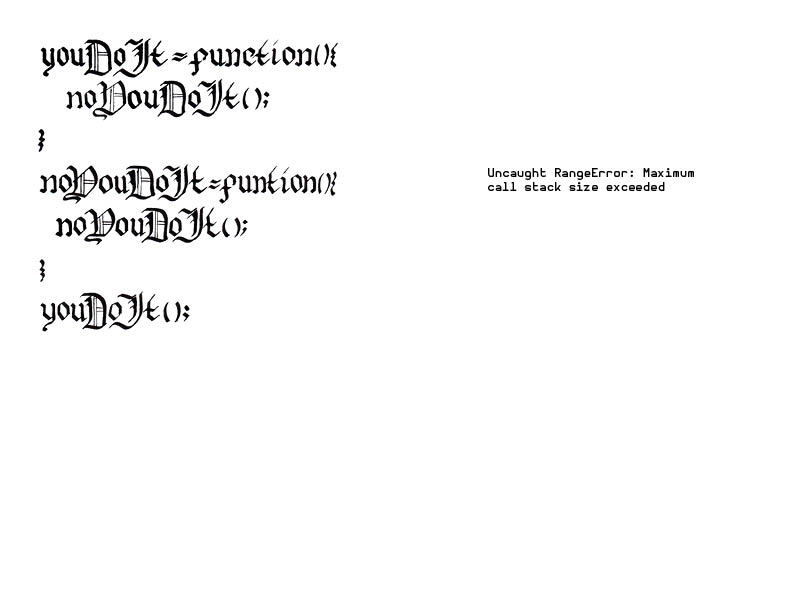 youDoIt=function(){
noYouDoIt();
}
noYouDoIt=funtion(){
noYouDoIt();
}
youDoIt();
Uncaught RangeError: Maximum
call stack size exceeded